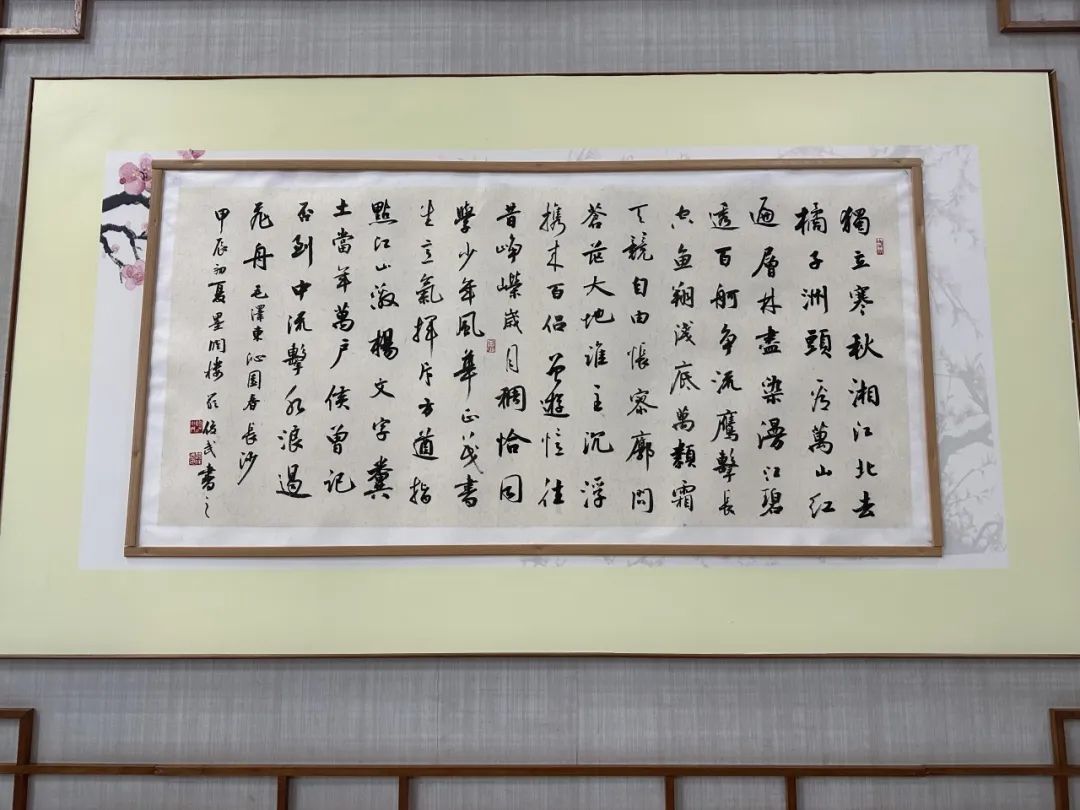 獨立寒秋湘江北去
橘子洲頭看萬山紅
遍層林盡染漫江碧
透百舸争流鷹擊長
空魚翔淺底萬類霜
天競自由悵寥廓問
蒼茫大地誰主沉浮
携来百侣曾遊憶往
昔崢嶸歲月稠恰同
學少年風華正茂書
生意氣揮斥方遒指
點江山激楊文字糞
土當年萬户侯曾記
否到中流擊水浪遏
飛舟 毛澤東沁園春長沙
甲辰初夏墨樓書之